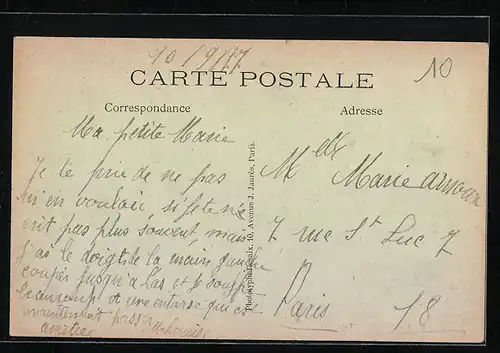 10/9/17
10
CARTE POSTALE
Correspondance
Adresse
Ma petite Marie
Je te prie de ne pas
m'en vouloir, si je te ne
crit pas plus souvent, mais
j'ai le doigt de la main gauche
couper jusqu'a l'as et je souffre
beaucoup et une entorse qui est
maintenant passer
amitiés
Phototypie 10, Avenue J. Jaurès, Paris.
Melle Marie
7 rue St Luc 7
Paris
18